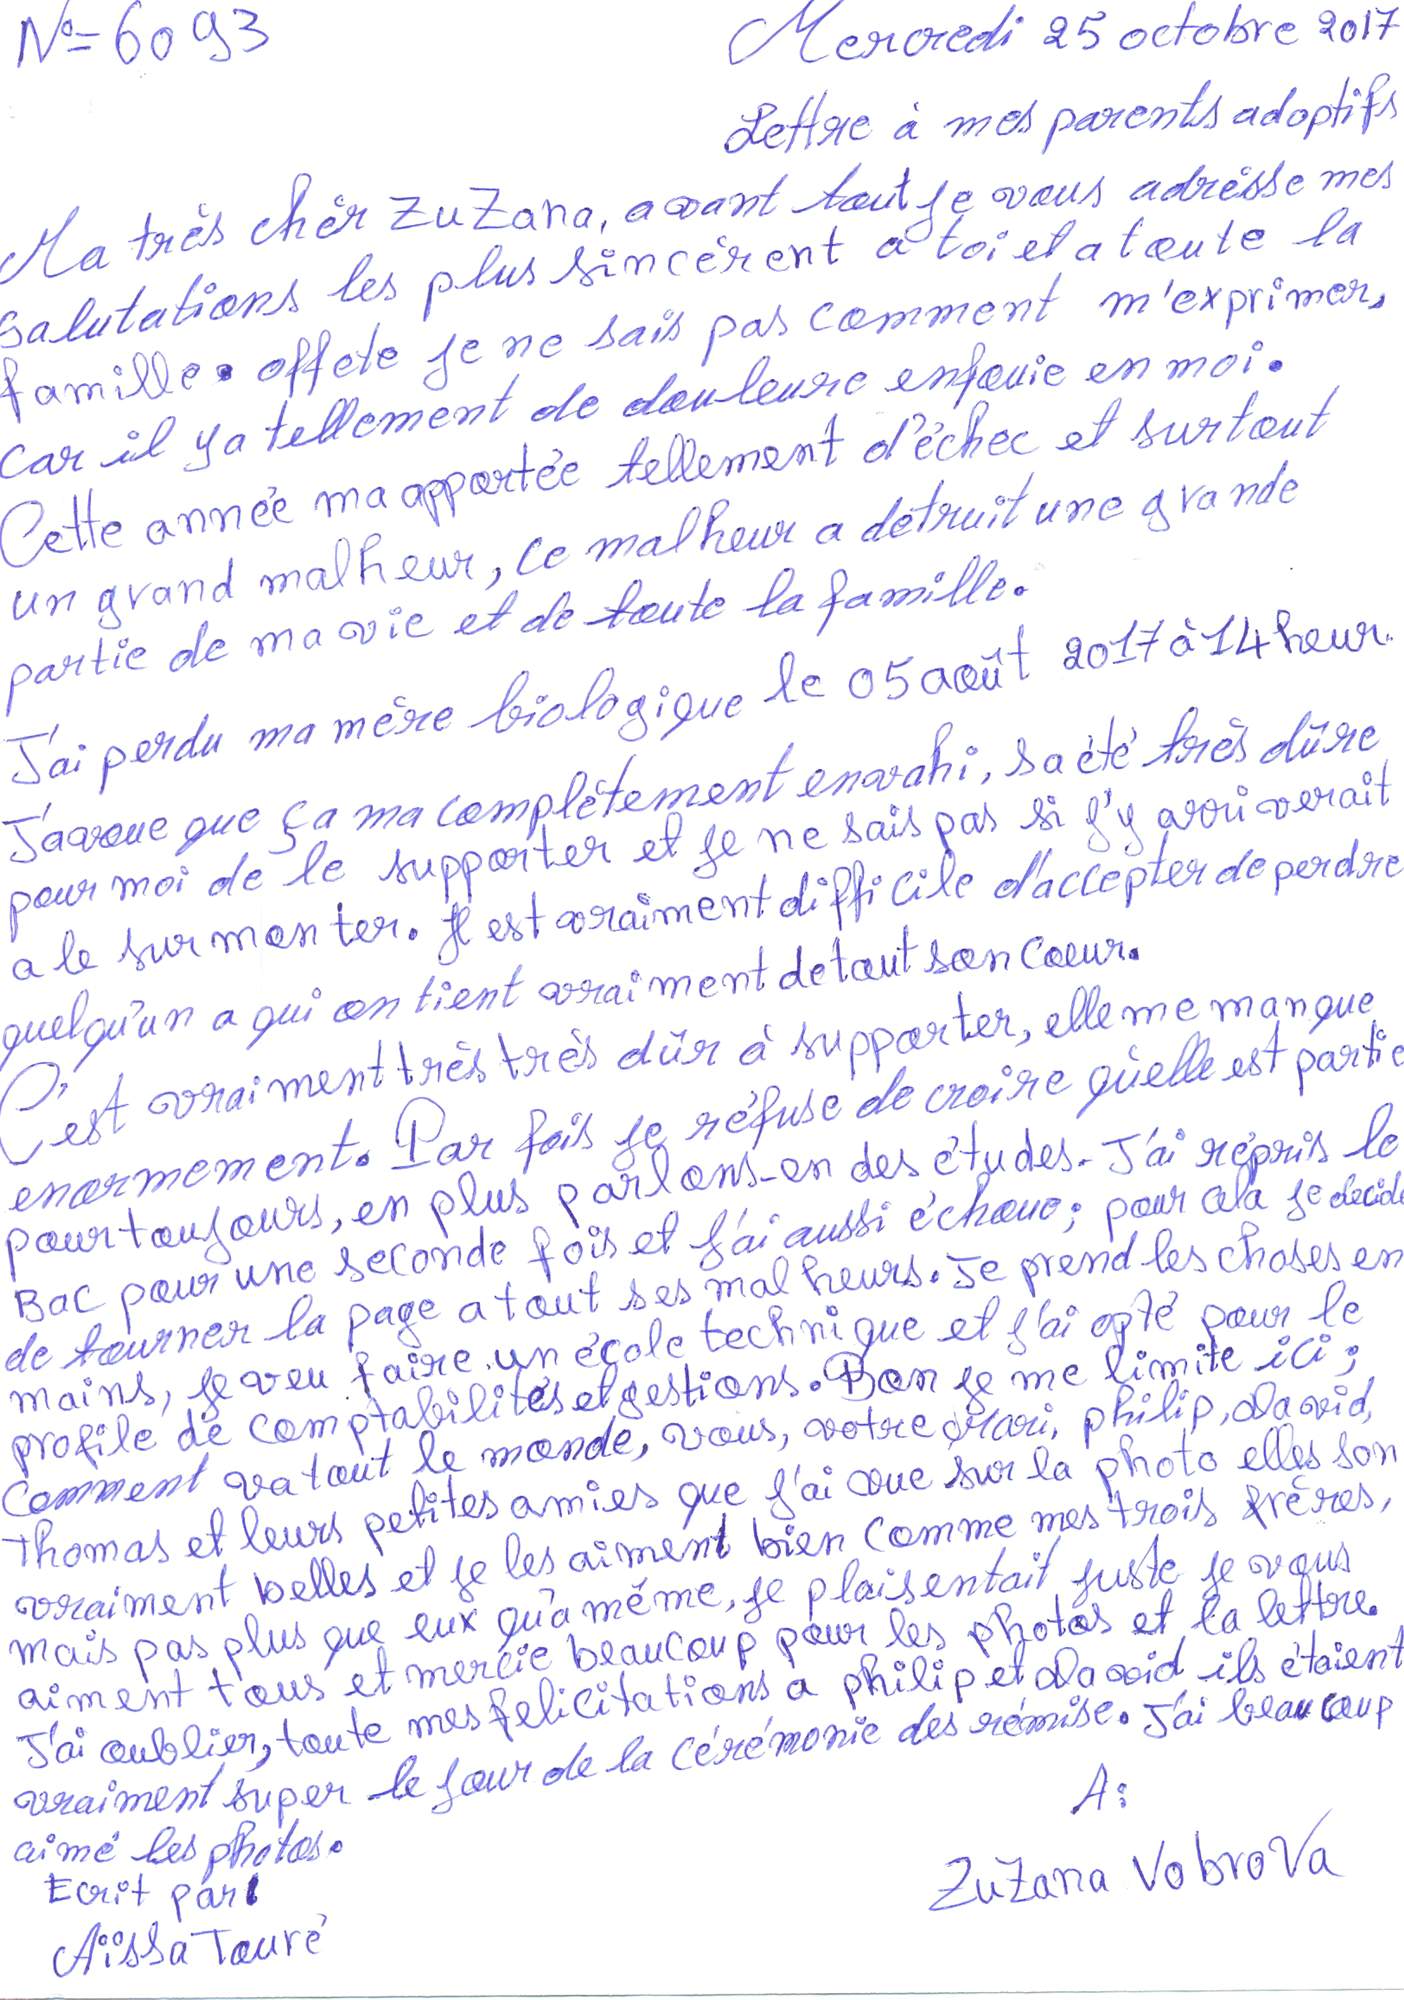 N°= 6093
Mercredi 25 octobre 2017
Lettre à mes parents adoptifs
Ma très chèr ZuZana, avant tout je vous adrèsse mes
salutations les plus sincérent a toi et a toute la
famille. offete je ne sais pas comment m'exprimer,
car il y a tellement de douleure enfouie en moi.
Cette année ma apportée tellement d'échec et surtout
un grand malheur, ce malheur a détruit une grande
partie de ma vie et de toute la famille.
J'ai perdu ma mère biologique le 05 août 2017 à 14 heur.
J'avoue que ça ma complètement envahi, sa été très dûre
pour moi de le supporter et je ne sais pas si j'y arriverait
a le surmonter. Il est vraiment difficile d'accepter de perdre
quelqu'un a qui on tient vraiment de tout son cœur.
C'est vraiment très très dûr à supporter, elle me manque
enormement. Par fois je réfuse de croire qu'elle est partie
pour toujours, en plus parlons-en des études. J'ai répris le
Bac pour une seconde fois et j'ai aussi échoue; pour cela je decide
de tourner la page a tout ses malheurs. Je prend les choses en
mains, je veu faire un école technique et j'ai opté pour le
profile de comptabilités et gestions. Bon je me limite ici;
Comment va tout le monde, vous, votre mari, philip, David,
Thomas et leurs petites amies que j'ai vue sur la photo elles son
vraiment belles et je les aiment bien comme mes trois frères,
mais pas plus que eux qu'a même, je plaisentait juste je vous
aiment tous et mercie beaucoup pour les photos et la lettre.
J'ai oublier, toute mes felicitations a philip et David ils étaient
vraiment super le jour de la cérémonie des rémise. J'ai beaucoup
aimé les photos.
A:
Ecrit par
ZuZana VobroVa
Aïssa Touré